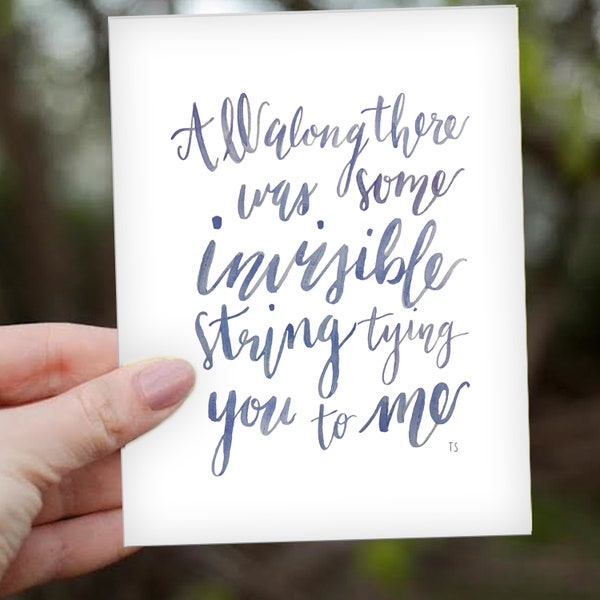 All along there
was some
invisible
string tying
you to me
TS